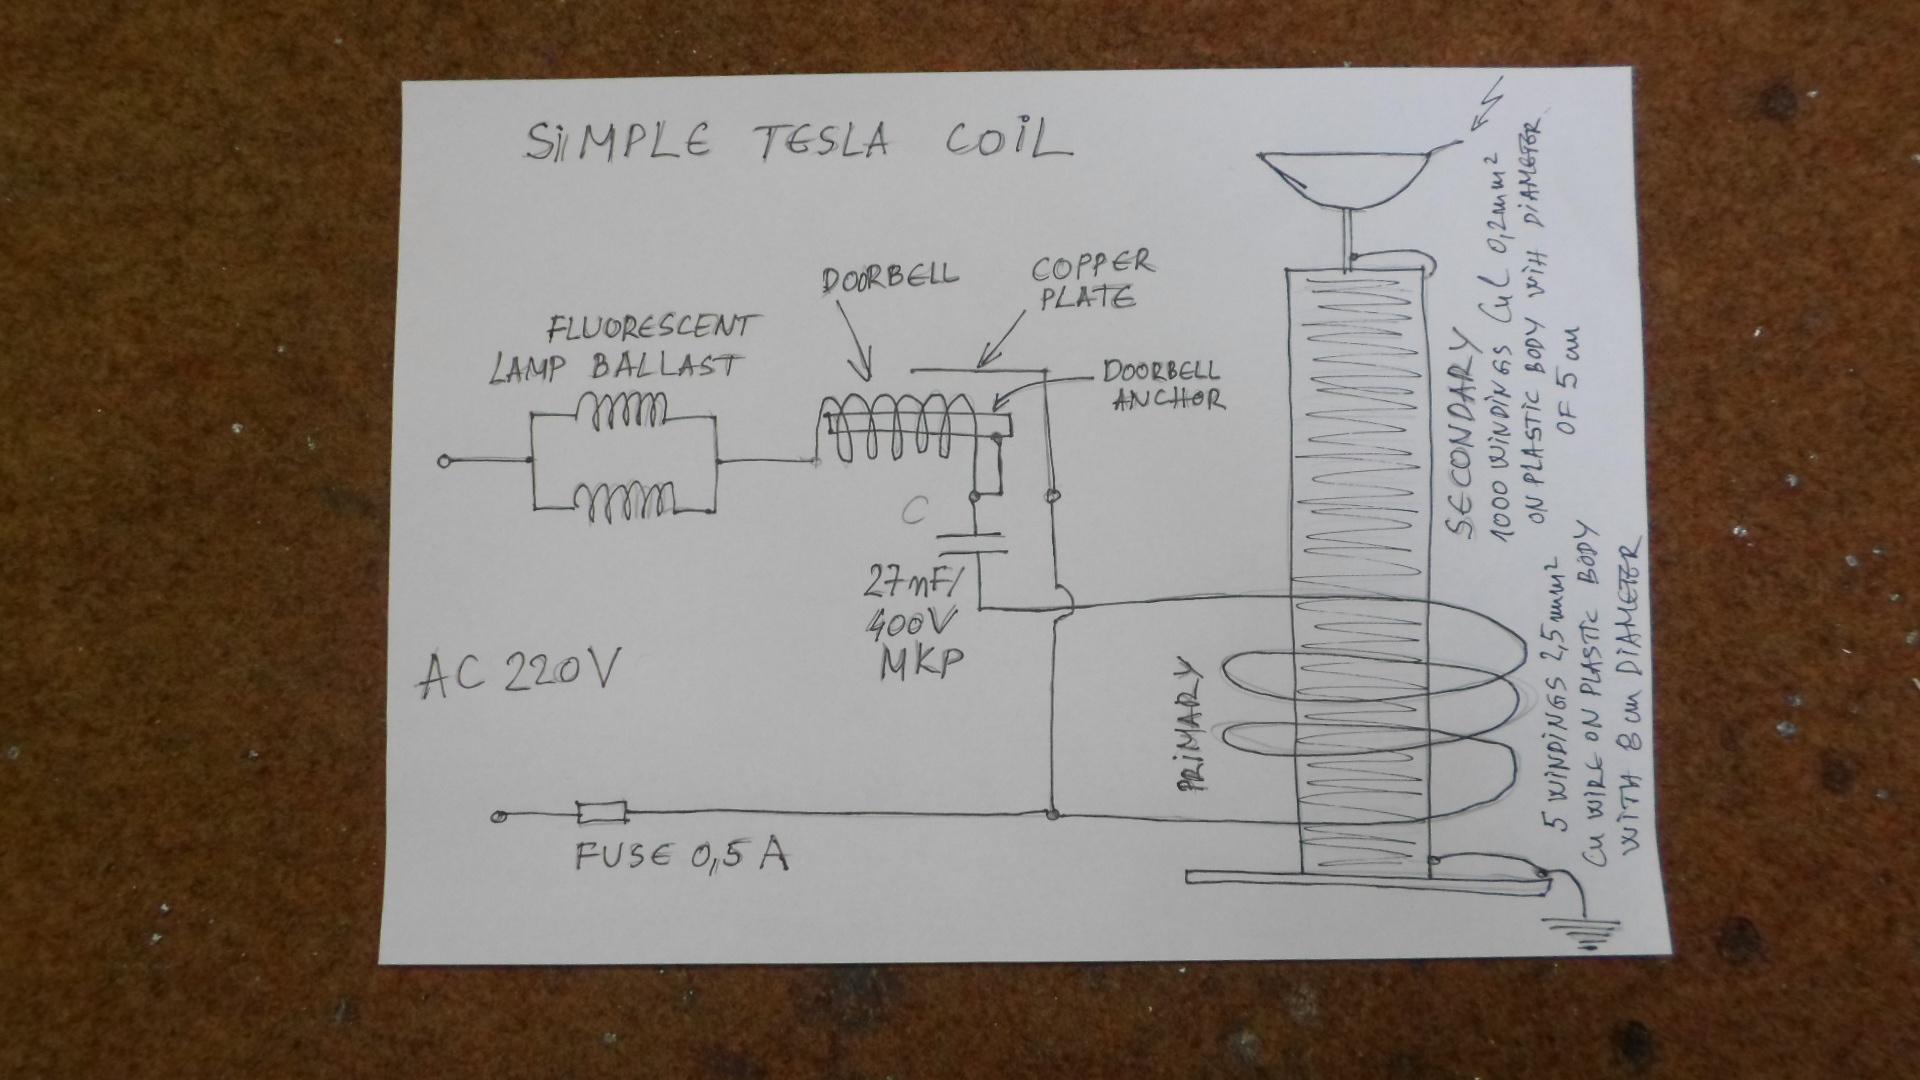 SIMPLE TESLA COIL
DOORBELL
COPPER
PLATE
FLUORESCENT
LAMP BALLAST
DOORBELL
ANCHOR
C
27nF/
400V
MKP
AC 220V
FUSE 0,5 A
PRIMARY
SECONDARY
1000 WINDINGS CuL 0,2mm²
ON PLASTIC BODY WITH DIAMETER
OF 5 cm
5 WINDINGS 2,5mm²
Cu WIRE ON PLASTIC BODY
WITH 8 cm DIAMETER